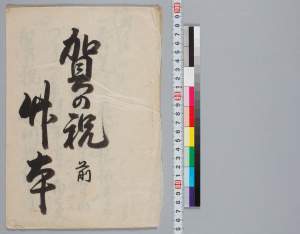 賀の祝
前
竹本